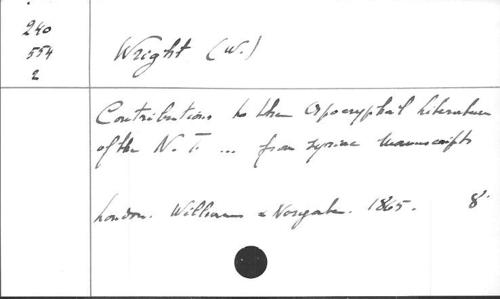 240
554
2
Wright (W.)
Contributions to the Apocryphal Literature
of the N. T. ... from Syriac manuscripts
London. Williams & Norgate. 1865. 8°